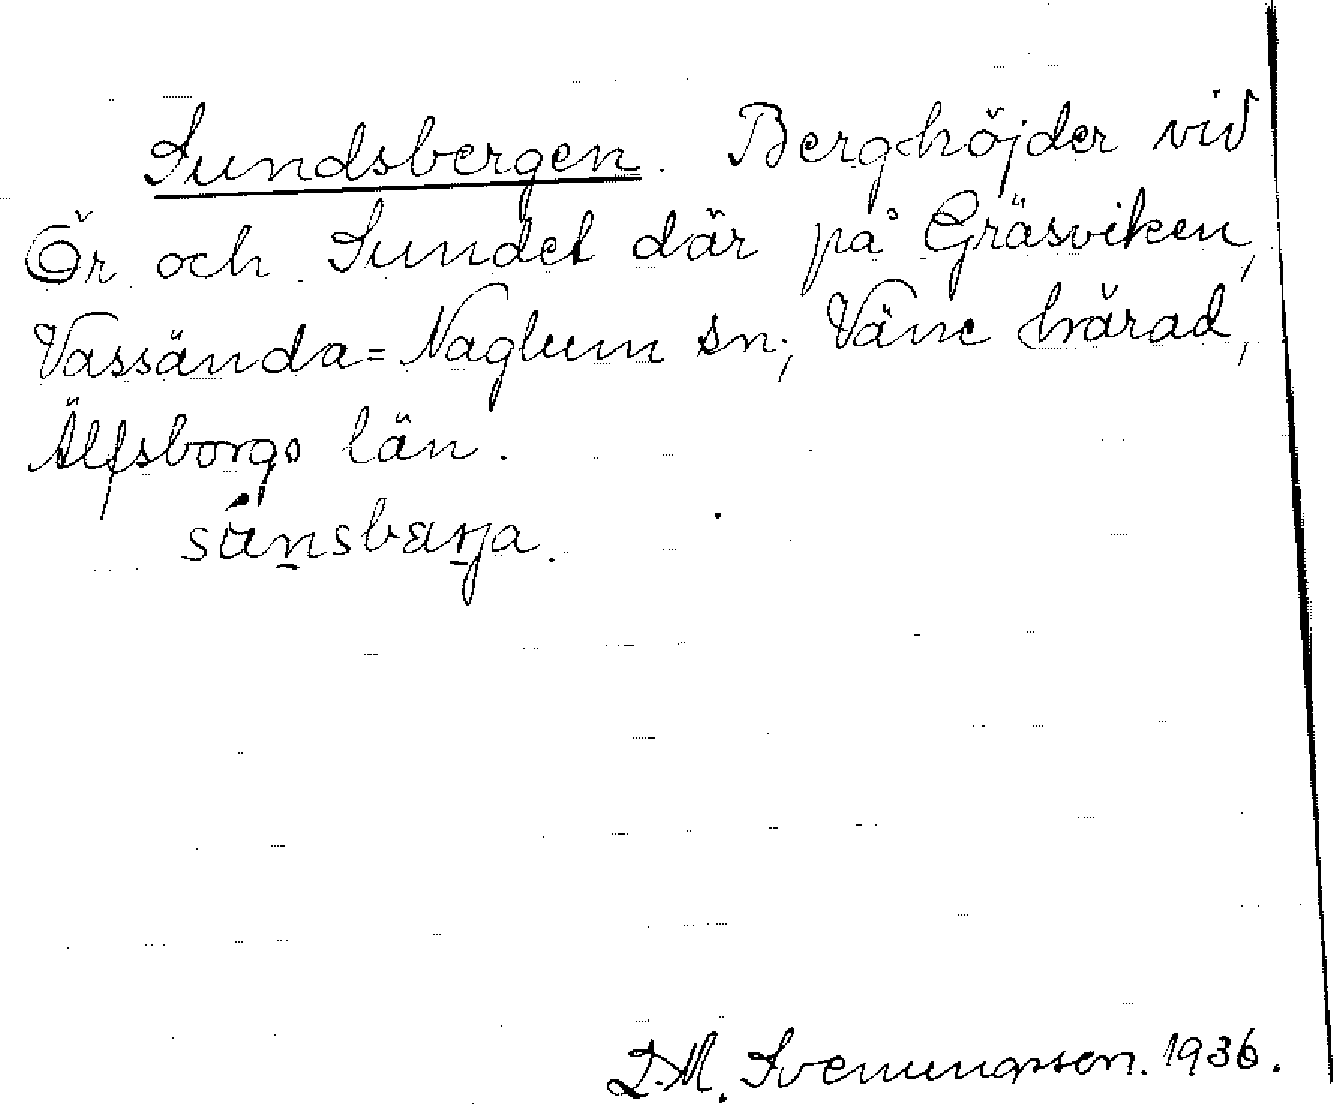 Sundsbergen. Berghöjder vid
Ör och Sundet där på Gräsviken,
Vassända=Naglum sn., Väne härad,
Älfsborgs län.
súnsbærja.
D.M. Svenungsson. 1936.